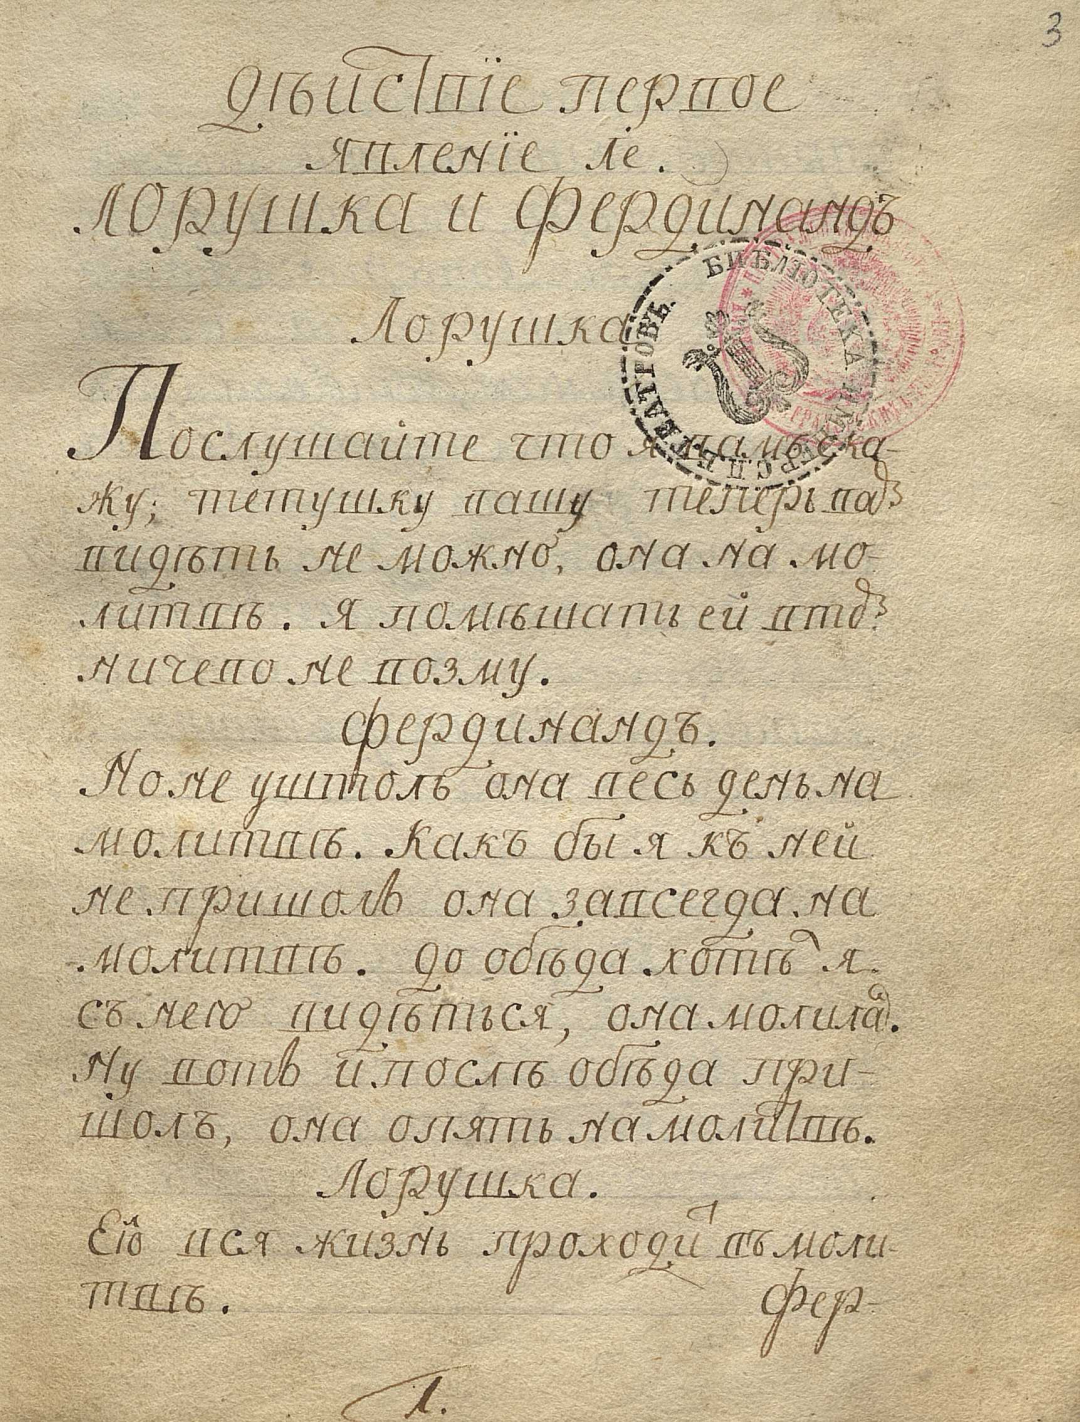 3
Дѣйствїе первое
явленїе 1е.
Лорушка и Фердинандъ
Лорушка
БИБЛІОТЕКА ТЕАТРОВЪ
Послушайте что я вамъ ска-
жу; тетушку вашу теперь вамъ
видѣть не можно, она на мо-
литвѣ. Я помѣшать ей втомъ
ничево не возму.
Фердинандъ.
Но не уштоль она весь день на
молитвѣ. Какъ бы я къ ней
не пришолъ она завсегда на
молитвѣ. До обѣда хотѣлъ я
съ нею видѣться, она молилас.
Ну вотъ и послѣ обѣда при-
шолъ, она опять на молитвѣ.
Лорушка.
вся жизнь проходит въ моли-
твѣ.
Фер-
1.